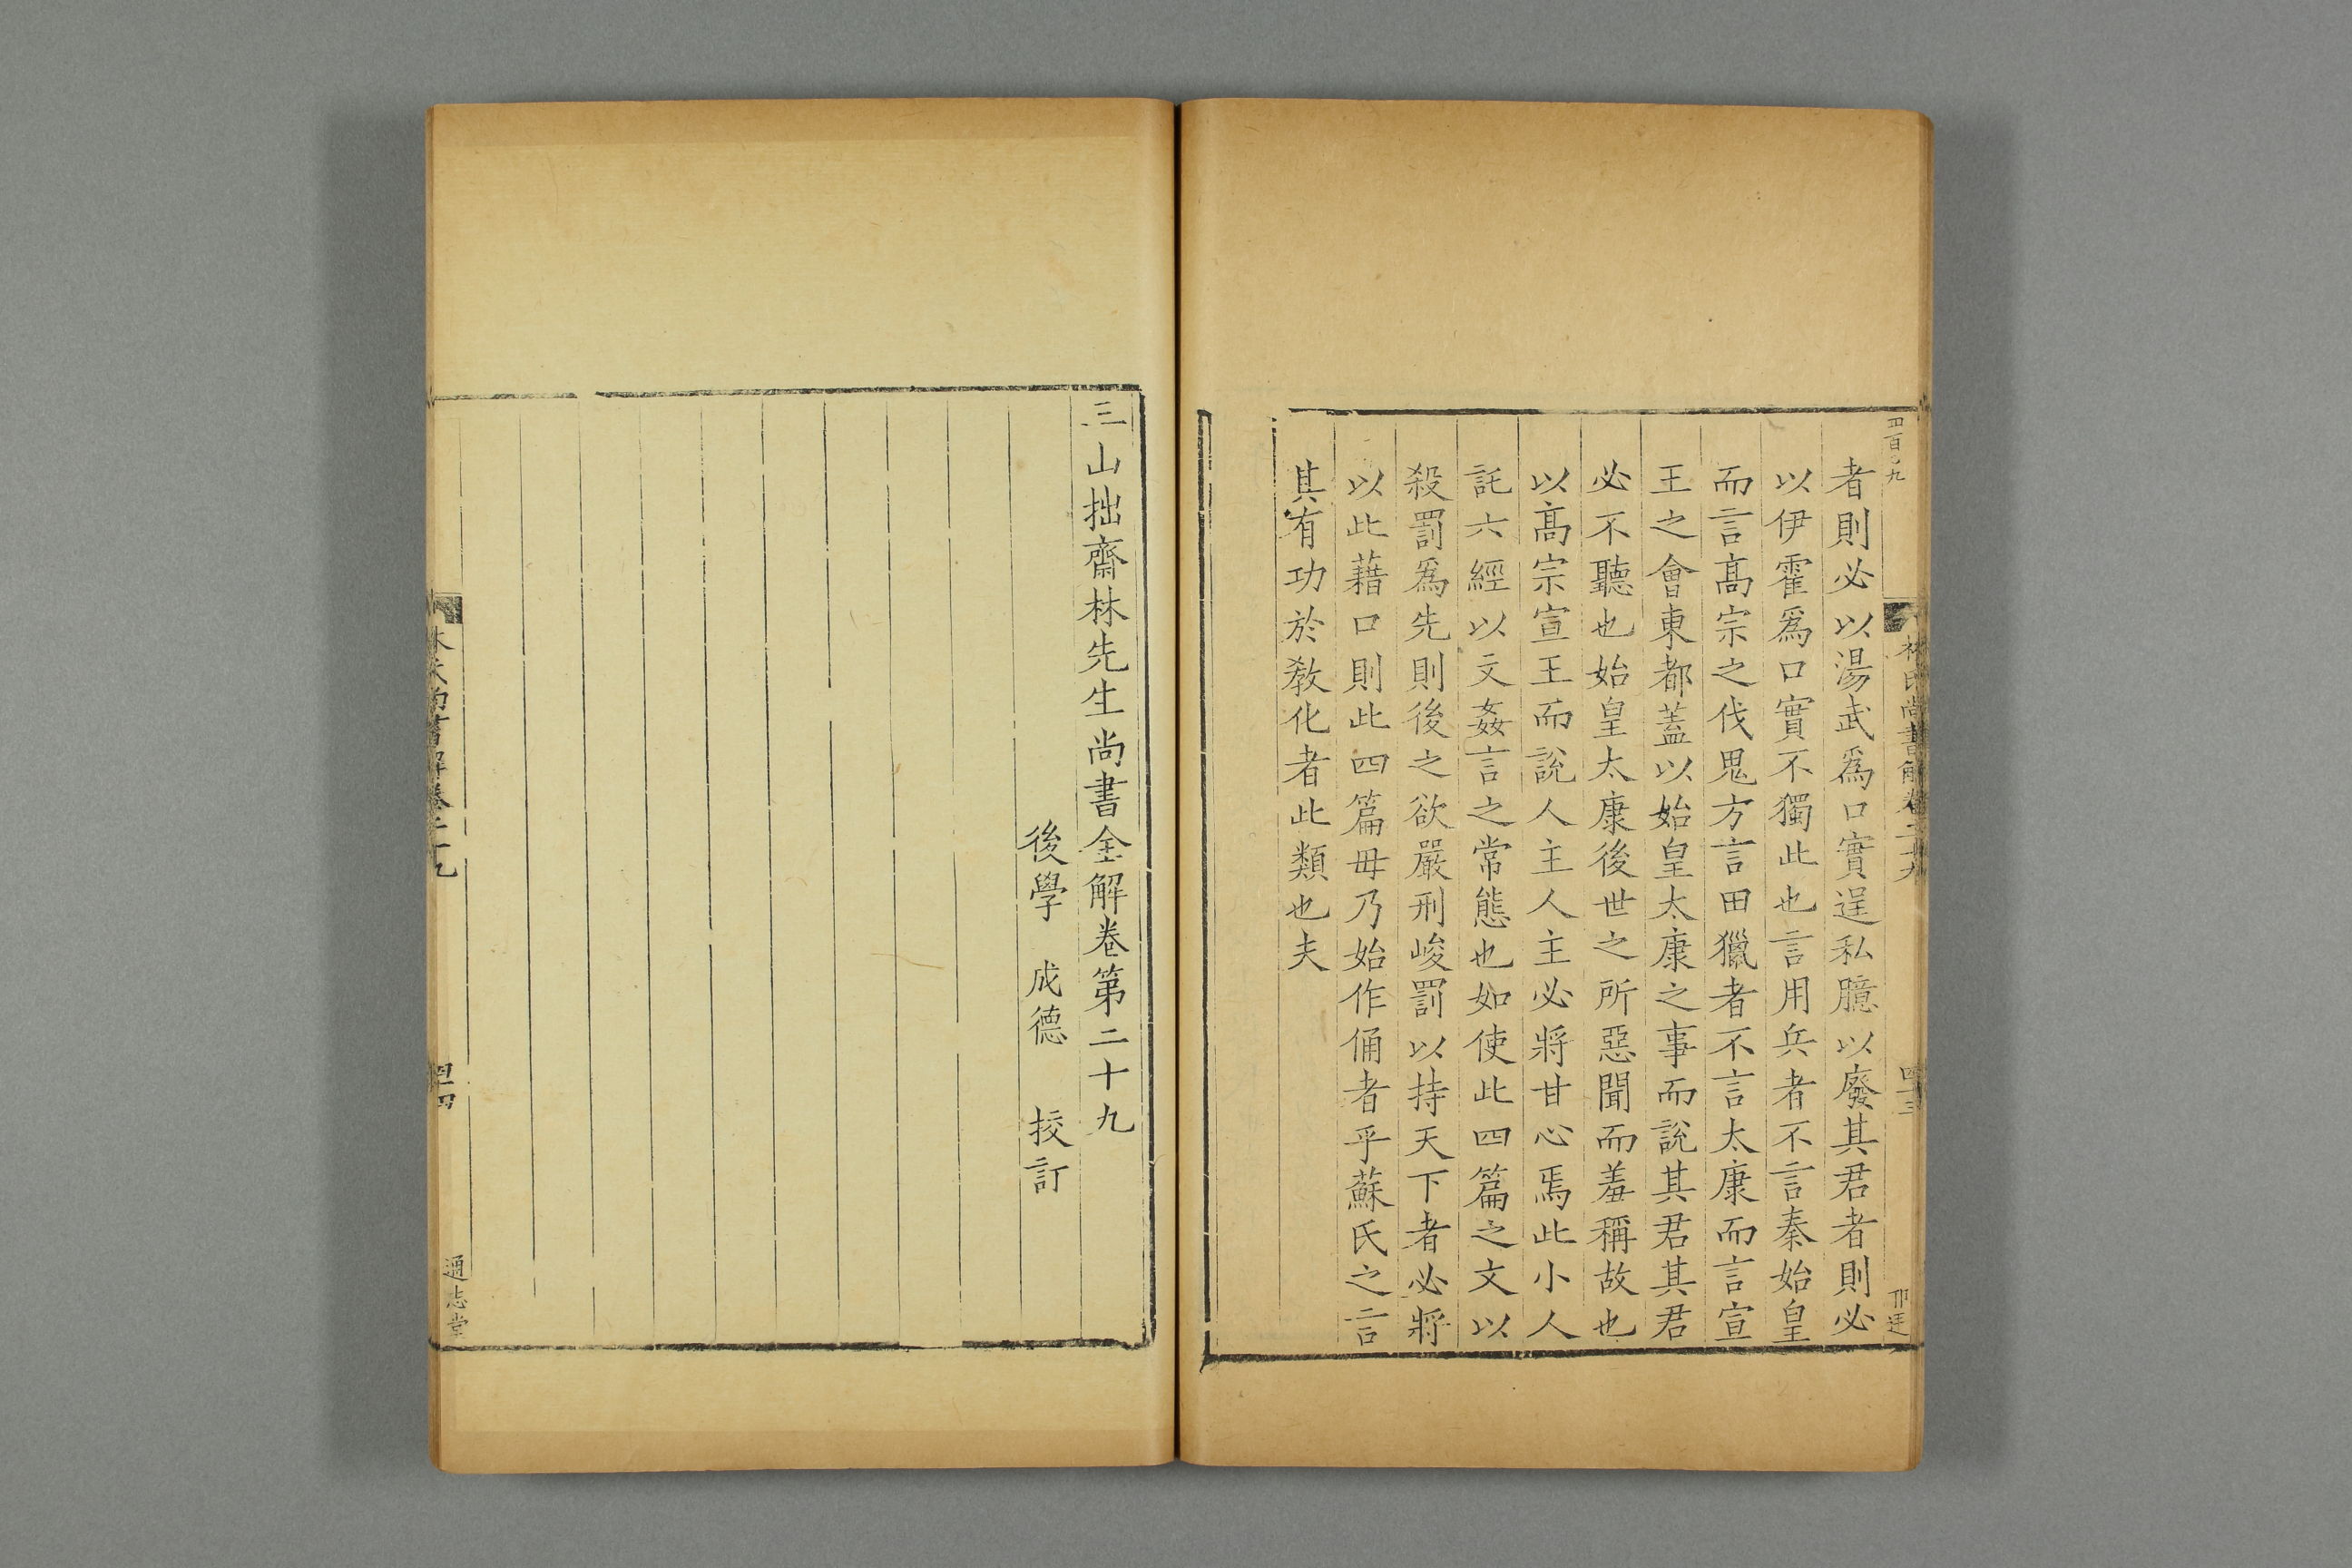 者則必以湯武爲口實逞私臆以廢其君者則必
以伊霍爲口實不獨此也言用兵者不言秦始皇
而言髙宗之伐鬼方言田獵者不言太康而言宣
王之會東都蓋以始皇太康之事而說其君其君
必不聽也始皇太康後世之所惡聞而羞稱故也
以髙宗宣王而說人主人主必將甘心焉此小人
託六經以文姦言之常態也如使此四篇之文以
殺罰爲先則後之欲嚴刑峻罰以持天下者必將
以此藉口則此四篇毋乃始作俑者乎蘇氏之言
其有功於教化者此類也夫
三山拙齋林先生尚書全解卷第二十九
後學 成德 挍訂
林氏尚書解卷二十九
四十四
通志堂